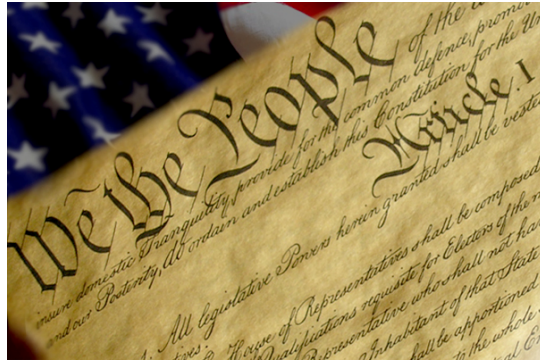 We the People of the
insure domestic Tranquility, provide for the common defence, promo
and our Posterity, do ordain and establish this Constitution for the Un
Article. I
All legislative Powers herein granted shall be vested
House of Representatives shall be composed
Qualifications requisite for Electors of the
Representative who shall not ha
Inhabitant of that State
shall be apportioned
the whole